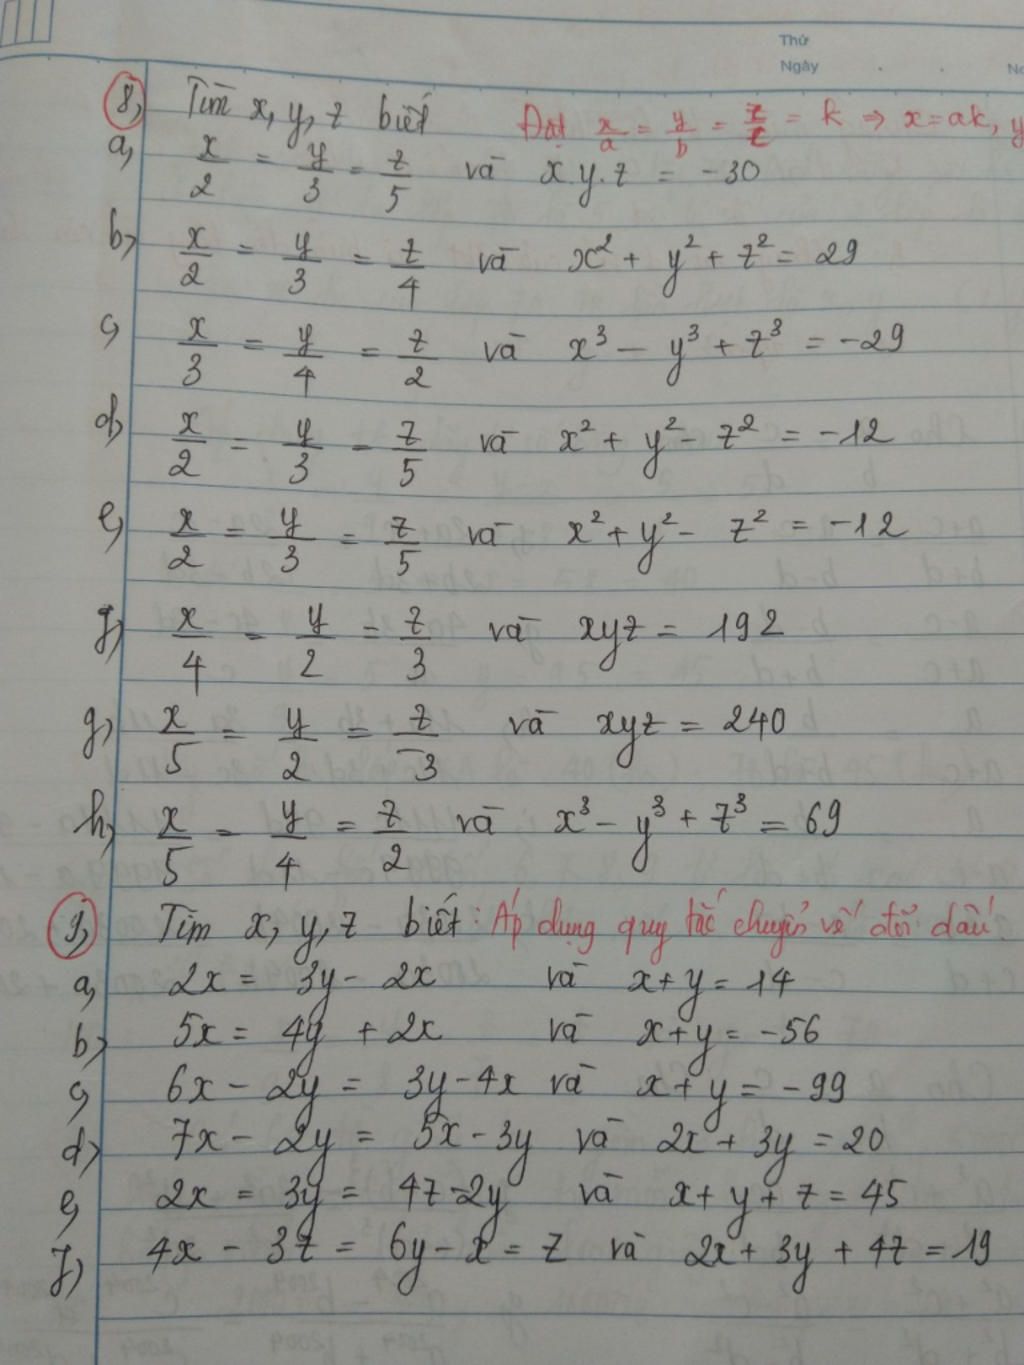 Thứ
Ngày
8, Tìm x, y, z biết Đặt x/a = y/b = z/c = k ⇒ x = ak, y
a, x/2 = y/3 = z/5 và x.y.z = -30
b, x/2 = y/3 = z/4 và x² + y² + z² = 29
c, x/3 = y/4 = z/2 và x³ - y³ + z³ = -29
d, x/2 = y/3 = z/5 và x² + y² - z² = -12
e, x/2 = y/3 = z/5 và x² + y² - z² = -12
f, x/4 = y/2 = z/3 và xyz = 192
g, x/5 = y/2 = z/-3 và xyz = 240
h, x/5 = y/4 = z/2 và x³ - y³ + z³ = 69
9, Tìm x, y, z biết: Áp dụng quy tắc chuyển vế đổi dấu
a, 2x = 3y - 2x và x + y = 14
b, 5x = 4y + 2x và x + y = -56
c, 6x - 2y = 3y - 4x và x + y = -99
d, 7x - 2y = 5x - 3y và 2x + 3y = 20
e, 2x = 3y = 4z - 2y và x + y + z = 45
f, 4x - 3z = 6y - x = z và 2x + 3y + 4z = 19